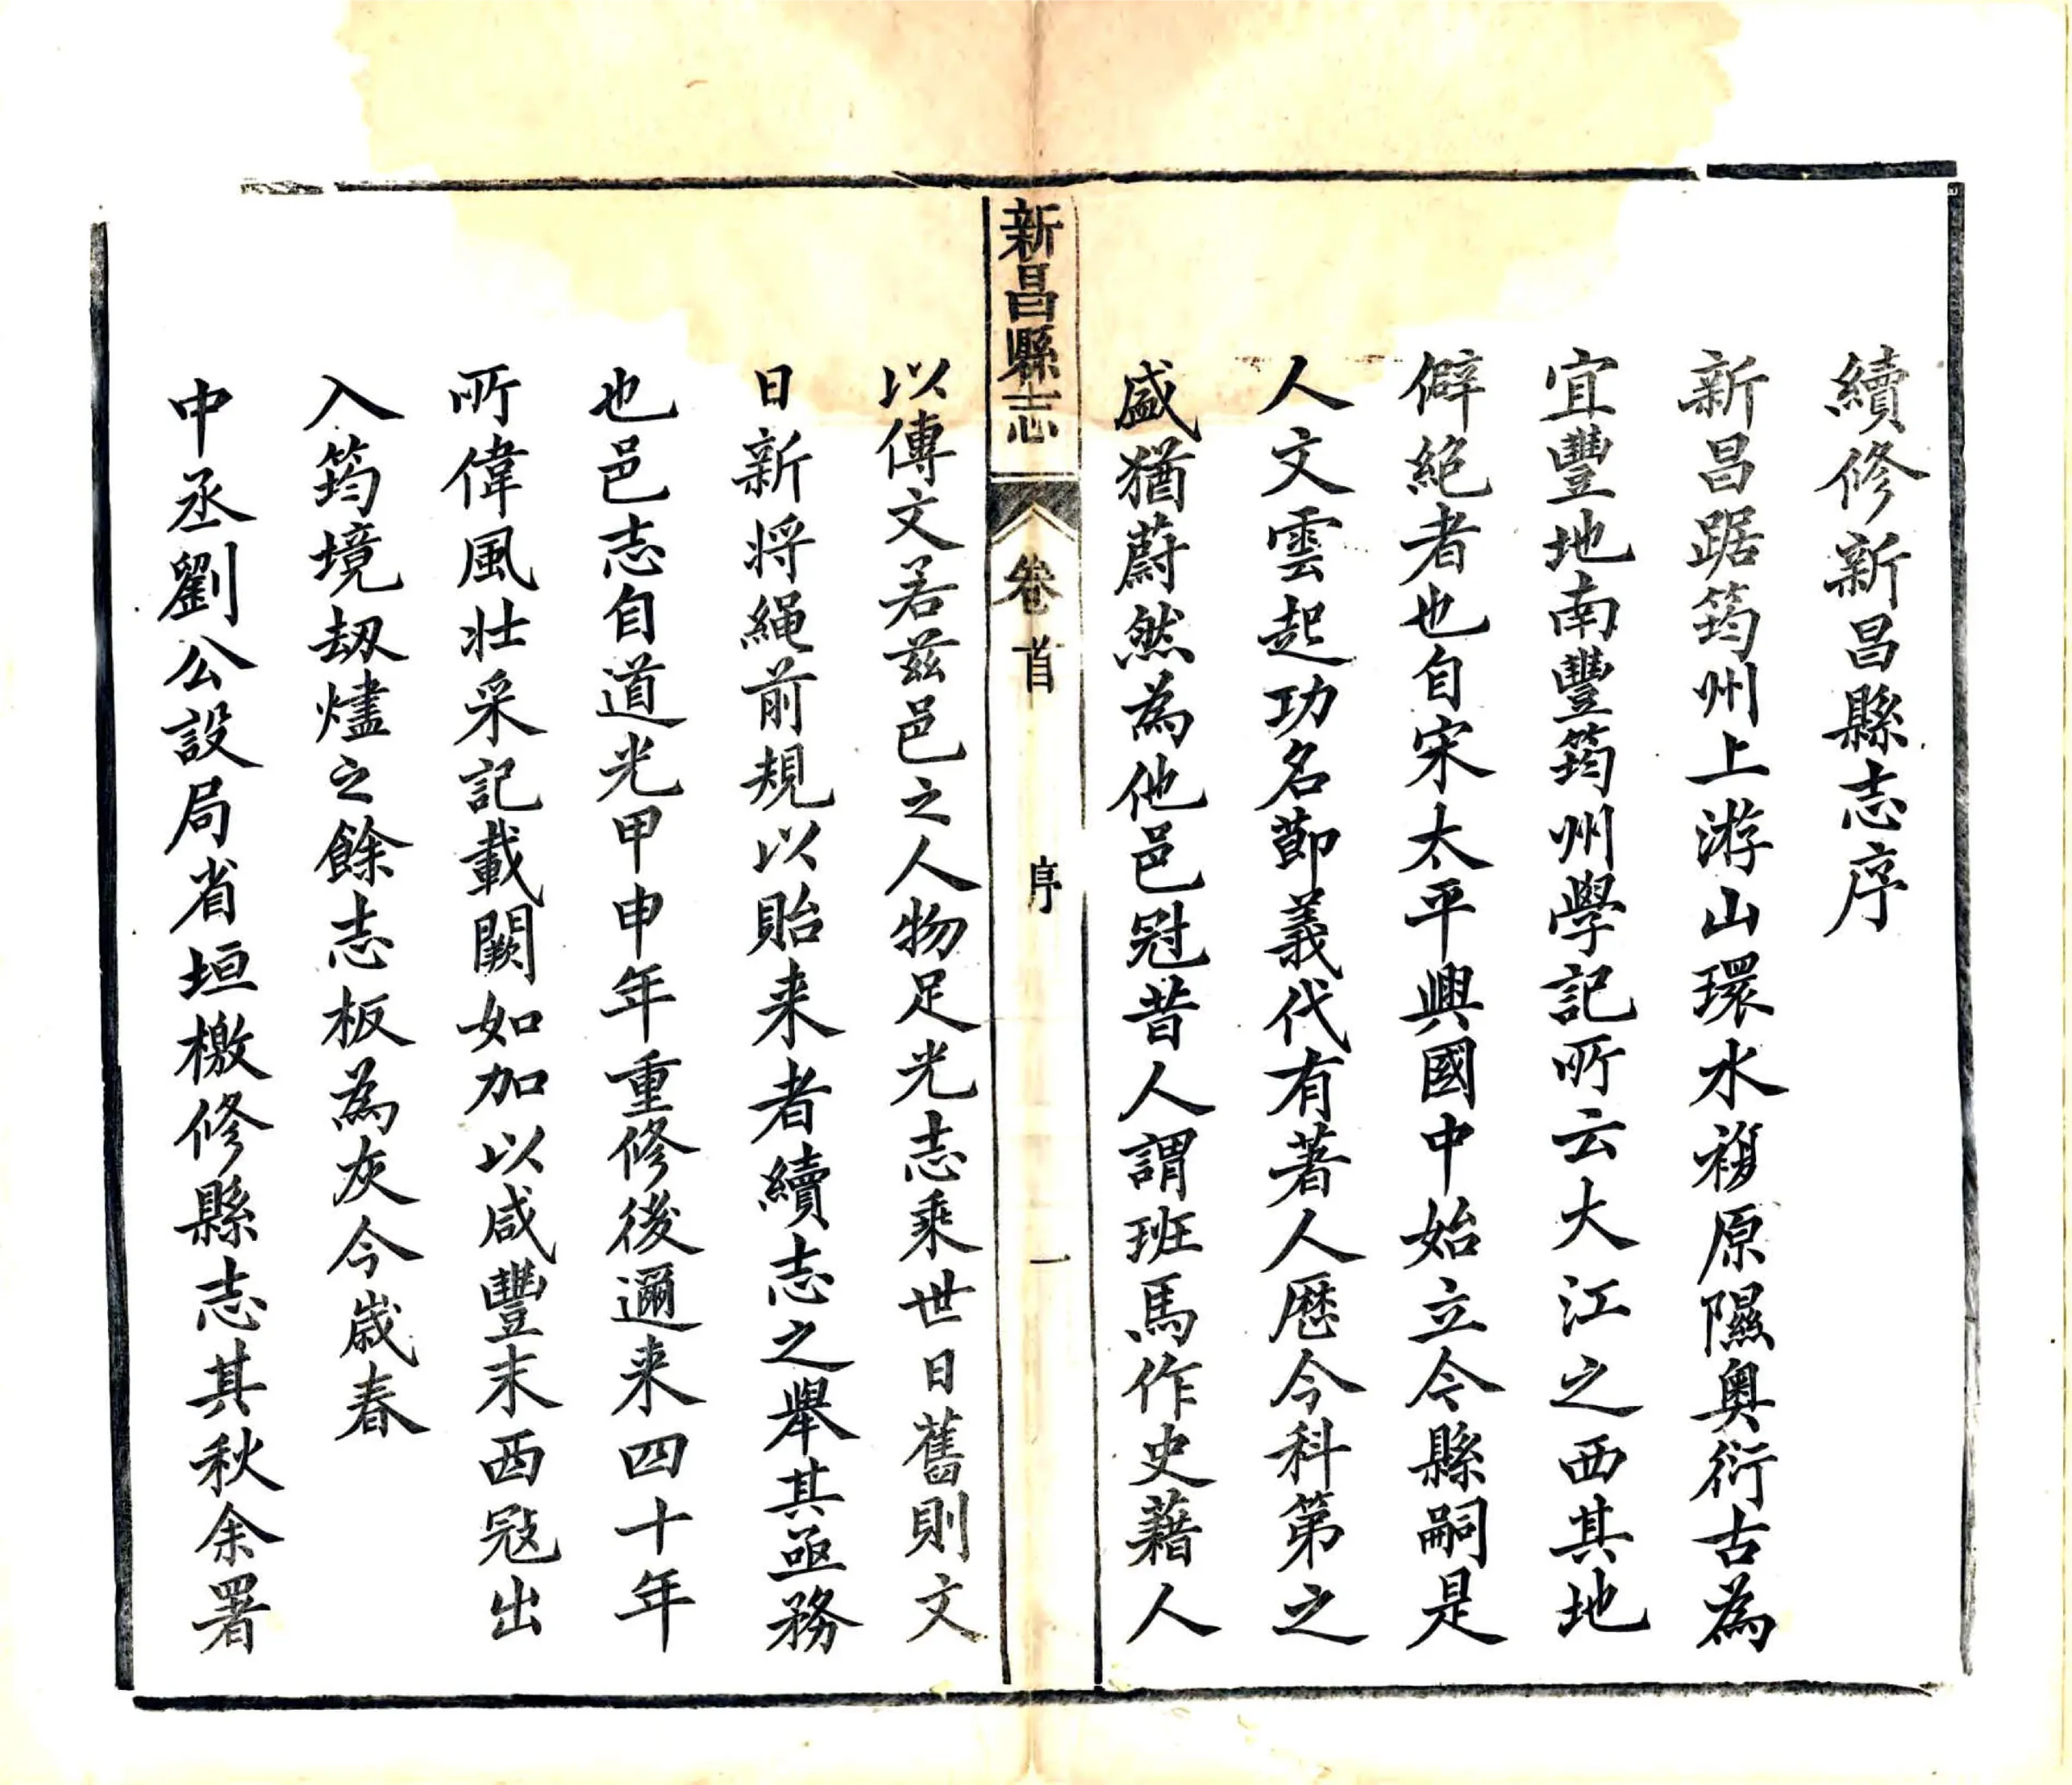 續修新昌縣志序
新昌踞筠州上游山環水複原隰奧衍古為
宜豐地南豐筠州學記所云大江之西其地
僻絕者也自宋太平興國中始立今縣嗣是
人文雲起功名節義代有著人歷今科第之
盛猶蔚然為他邑冠昔人謂班馬作史藉人
新昌縣志
卷首
序
一
以傳文若茲邑之人物足光志乘世日舊則文
日新將繩前規以貽来者續志之舉其亟務
也邑志自道光甲申年重修後邇来四十年
所偉風壯采記載闕如加以咸豐末西寇出
入筠境刼燼之餘志板為灰今歲春
中丞劉公設局省垣檄修縣志其秋余署